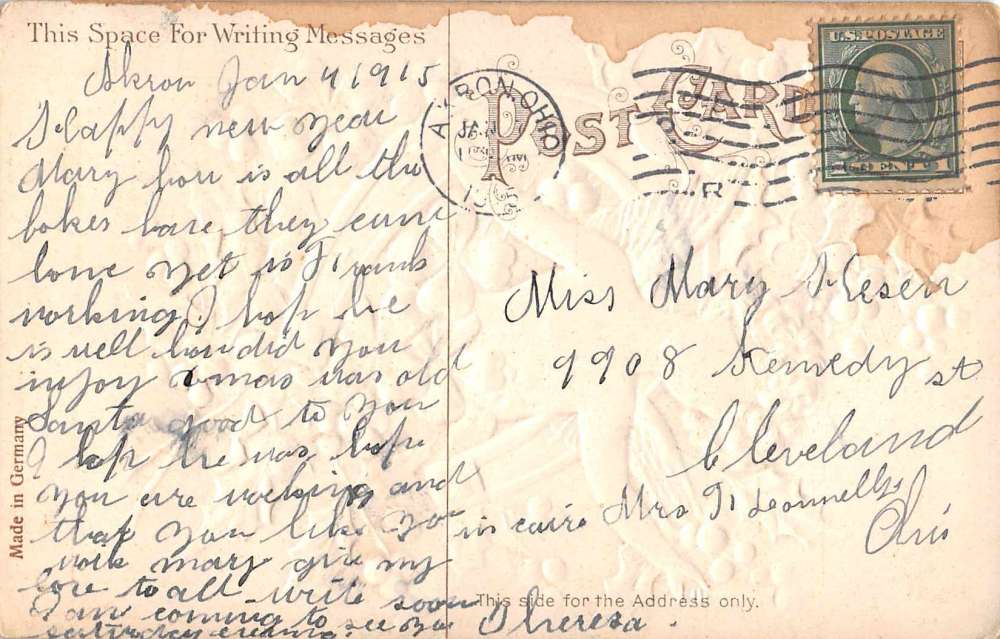 This Space For Writing Messages
Akron Jan 4 1915
Happy new year
Mary how is all the
fokes have they even
wone yet is Frank
working I hop he
is well how did you
injoy xmas was old
Santa good to you
I hop he was hope
you are working and
that you like you
work mary give my
love to all write soon
I am coming to see you
saturday evening.
Theresa.
Made in Germany
POST CARD
AKRON, OHIO
JAN
U.S. POSTAGE
1 CENT 1
Miss Mary
9908 Kennedy st
Cleveland
in caire Mrs
Ohio
This side for the Address only.